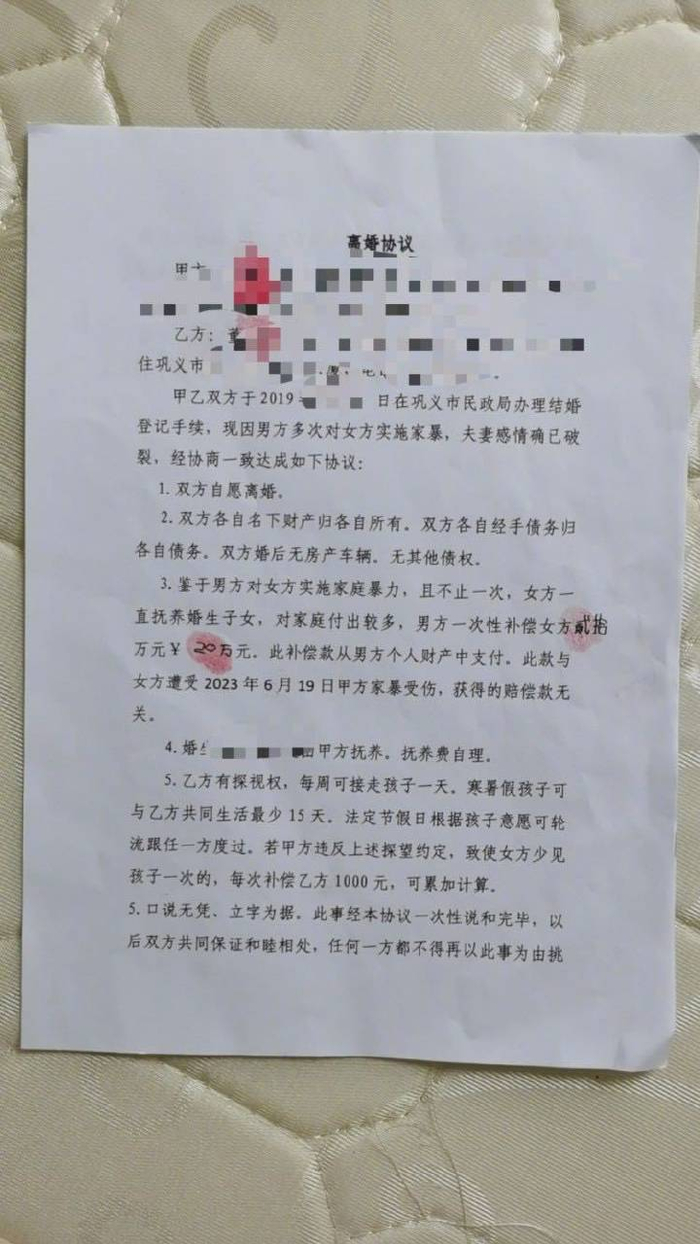 离婚协议
甲方
乙方：董
住巩义市
甲乙双方于2019 日在巩义市民政局办理结婚
登记手续，现因男方多次对女方实施家暴，夫妻感情确已破
裂，经协商一致达成如下协议：
1. 双方自愿离婚。
2. 双方各自名下财产归各自所有。双方各自经手债务归
各自债务。双方婚后无房产车辆。无其他债权。
3. 鉴于男方对女方实施家庭暴力，且不止一次，女方一
直抚养婚生子女，对家庭付出较多，男方一次性补偿女方贰拾
万元￥ 20万元。此补偿款从男方个人财产中支付。此款与
女方遭受 2023 年 6 月 19 日甲方家暴受伤，获得的赔偿款无
关。
4. 婚 甲方抚养。抚养费自理。
5. 乙方有探视权，每周可接走孩子一天。寒暑假孩子可
与乙方共同生活最少 15 天。法定节假日根据孩子意愿可轮
流跟任一方度过。若甲方违反上述探望约定，致使女方少见
孩子一次的，每次补偿乙方 1000 元，可累加计算。
5. 口说无凭、立字为据。此事经本协议一次性说和完毕，以
后双方共同保证和睦相处，任何一方都不得再以此事为由挑